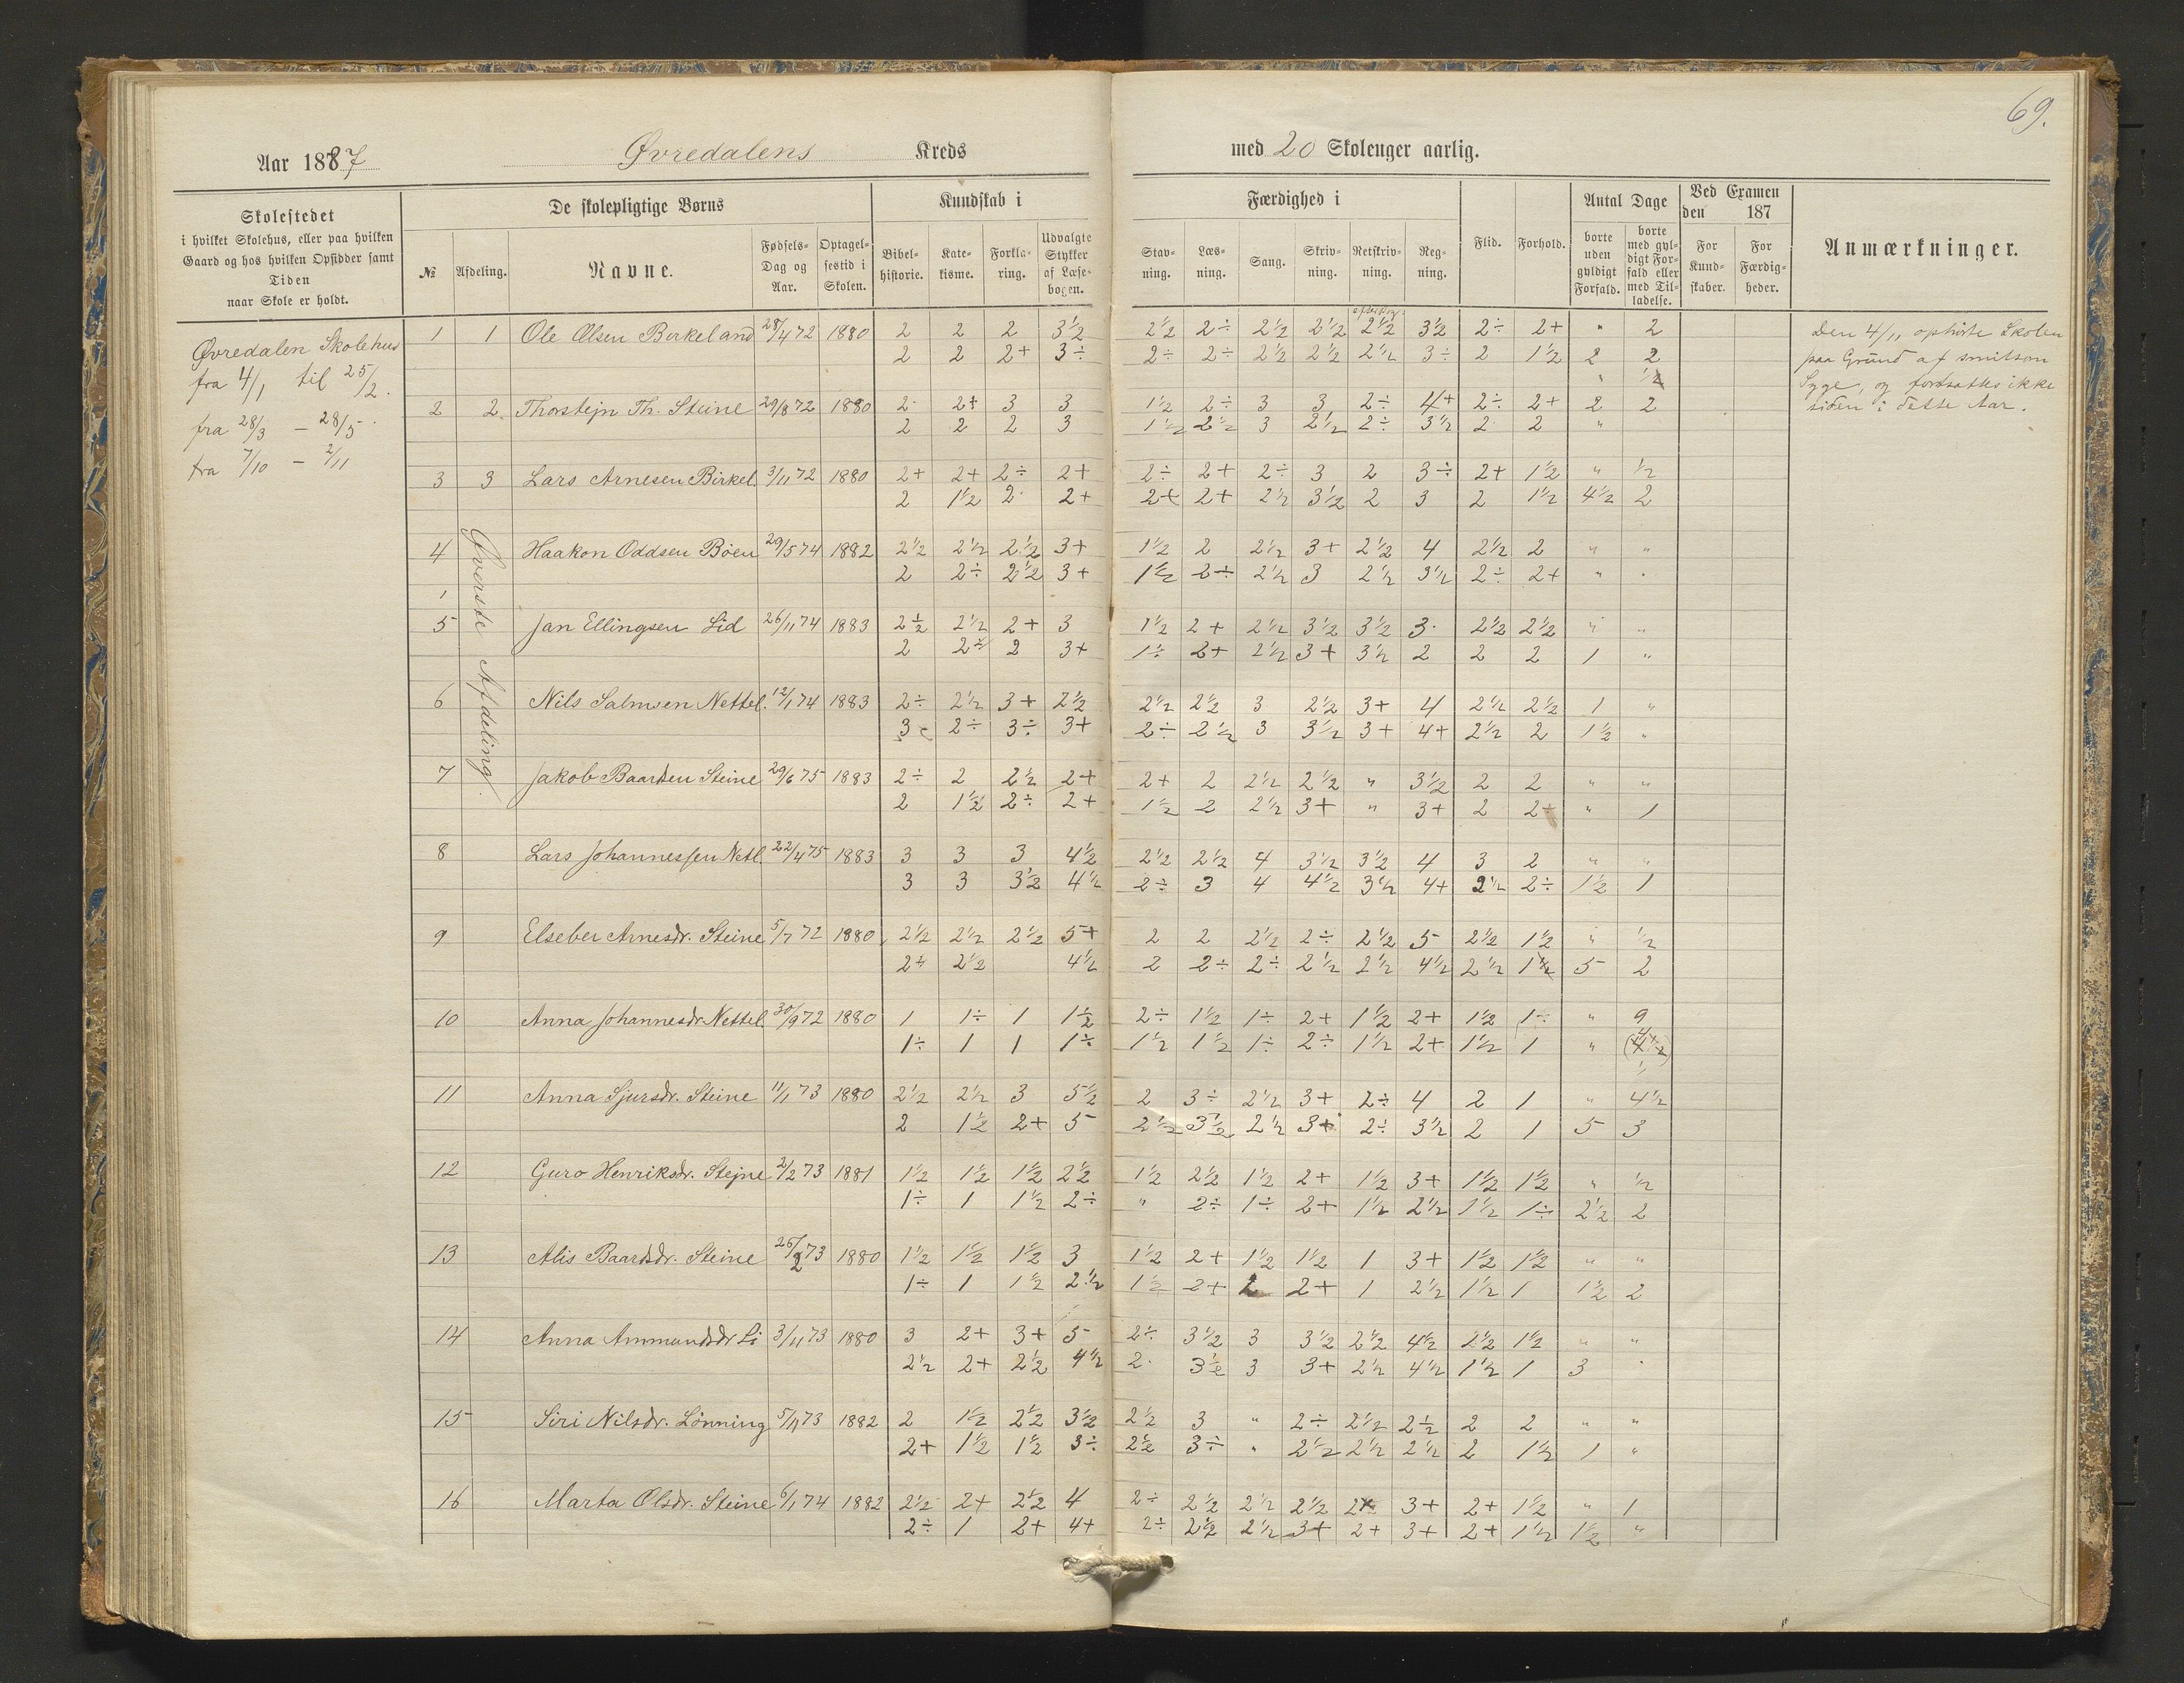 69.
Aar 1887 Øvredalens Kreds med 20 Skoleuger aarlig.
Skolestedet
i hvilket Skolehus, eller paa hvilken
Gaard og hos hvilken Opsidder samt
Tiden
naar Skole er holdt.
De skolepligtige Børns
№ Afdeling. Navne. Fødsels-Dag og Aar. Optagelsestid i Skolen.
Kundskab i
Bibelhistorie. Katekisme. Forklaring. Udvalgte Stykker af Læsebogen.
Færdighed i
Stavning. Læsning. Sang. Skrivning. Retskrivning. Regning.
Flid. Forhold.
Antal Dage
borte uden gyldigt Forfald. borte med gyldigt Forfald eller med Tilladelse.
Ved Examen
den 187
For Kundskaber. For Færdigheder.
Anmærkninger.
Øvredalen Skolehus
fra 4/1 til 25/2.
fra 28/3 – 28/5
fra 7/10 – 2/11
Øverste Afdeling.
Den 4/11 ophørte Skolen
paa Grund af smitsom
Syge, og fortsattes ikke
siden i dette Aar.
1 1 Ole Olsen Birkeland 28/4 72 1880 2 2 2 3½ 2½ 2÷ 2½ 2½ 2½ 3½ 2÷ 2+ " 2
2 2 2+ 3÷ 2÷ 2÷ 2½ 2½ 2½ 3÷ 2 1½ 2 2
2 2 Thorstejn Th. Steine 29/8 72 1880 2 2÷ 3 3 1½ 2÷ 3 3 2÷ 4+ 2÷ 2+ 2 2
2 2 2 3 1½ 2½ 3 2½ 2÷ 3½ 2 2 "
3 3 Lars Arnesen Birkel. 3/11 72 1880 2+ 2+ 2÷ 2+ 2÷ 2+ 2÷ 3 2 3÷ 2+ 1½ " ½
2 1½ 2 2+ 2+ 2+ 2½ 3½ 2 3 2 1½ 4½ 2
4 Haakon Oddsen Böen 29/5 74 1882 2½ 2½ 2½ 3+ 1½ 2 2½ 3+ 2½ 4 2½ 2 " "
2 2÷ 2½ 3+ 1½ 2÷ 2½ 3 2½ 3½ 2÷ 2+ "
5 Jan Ellingsen Lid 26/11 74 1883 2½ 2½ 2+ 3 1½ 2+ 2½ 3½ 3½ 3 2½ 2½ " "
2 2÷ 2 3+ 1÷ 2+ 2½ 3+ 3½ 2 2 2 1 "
6 Nils Salmsen Nettel. 12/1 74 1883 2÷ 2½ 3+ 2½ 2½ 2½ 3 2½ 3+ 4 2½ 2½ 1 "
3 2÷ 3÷ 3+ 2÷ 2½ 3 3½ 3+ 4+ 2½ 2 1½ "
7 Jakob Baardsen Steine 29/6 75 1883 2÷ 2 2½ 2+ 2+ 2 2½ 2½ " 3½ 2 2 " "
2 1½ 2÷ 2+ 1½ 2 2½ 3+ " 3+ 2 2+ " 1
8 Lars Johannessen Netl. 22/4 75 1883 3 3 3 4½ 2½ 2½ 4 3½ 3½ 4 3 2 " "
3 3 3½ 4½ 2÷ 3 4 4½ 3½ 4+ 2½ 2÷ 1½ 1
9 Elseber Arnesdr. Steine 5/7 72 1880 2½ 2½ 2½ 5+ 2 2 2½ 2÷ 2½ 5 2½ 1½ " ½
2÷ 2½ 4½ 2 2÷ 2÷ 2½ 2½ 4½ 2½ 1½ 5 2
10 Anna Johannesdr. Nettel. 30/9 72 1880 1 1÷ 1 1½ 2÷ 1½ 1÷ 2+ 1½ 2+ 1½ 1÷ " 9
1÷ 1 1 1÷ 1½ 1½ 1÷ 2÷ 1½ 2+ 1½ 1 "
11 Anna Sjursdr. Steine 11/1 73 1880 2½ 2½ 3 5½ 2 3÷ 2½ 3+ 2÷ 4 2 1 " 4½
2 1½ 2+ 5 2½ 3½ 2½ 3+ 2÷ 3½ 2 1 5 3
12 Guro Henriksdr. Stejne 2/2 73 1881 1½ 1½ 1½ 2½ 1½ 2½ 1½ 2+ 1½ 3+ 1½ 1½ " ½
1÷ 1 1½ 2÷ " 2÷ 1÷ 2+ 1½ 2½ 1½ 1÷ 2½ 2
13 Alis Baardsdr. Steine 26/2 73 1880 1½ 1½ 1½ 3 1½ 2+ 1½ 1½ 1 3+ 1½ 1½ " "
1÷ 1 1½ 2½ 1½ 2+ 2 2+ 1 2½ 1½ 1 1½ 2
14 Anna Ammundsdr Li 3/11 73 1880 3 2+ 3+ 5 2÷ 3½ 3 3½ 2½ 4½ 2½ 1½ " "
2½ 2+ 2½ 4½ 2 3½ 3 3+ 2½ 4½ 1½ 1 3
15 Siri Nilsdr. Lönning 5/11 73 1882 2 1½ 2½ 3½ 2½ 3 " 2÷ 2½ 2½ 2 2 " "
2+ 1½ 1½ 3÷ 2½ 3÷ " 2½ 2½ 2½ 2 1½ 1 "
16 Marta Olsdr. Steine 6/1 74 1882 2½ 2+ 2½ 4 2÷ 2½ 2½ 2½ 2 3+ 2+ 1½ " 1
2÷ 1 2+ 4+ 2÷ 2½ 2½ 3+ 2+ 3+ 2+ 1½ 1½ "